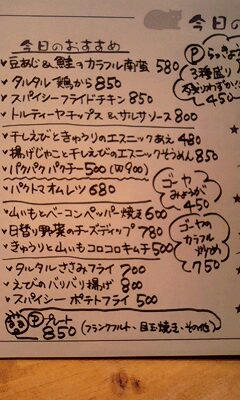 今日のおすすめ
豆あじ&鮭のカラフル南蛮 580
タルタル鶏から 850
スパイシーフライドチキン 850
トルティーヤチップス&サルサソース 800
干しえびときゅうりのエスニックあえ 480
揚げじゃこと干しえびのエスニックそうめん 850
パクパクパクチー 500
パクトマオムレツ 680
山いもとベーコンペッパー焼き 600
日替り野菜のチーズディップ 780
きゅうりと山いもコロコロキムチ 500
タルタルささみフライ 700
えびのバリバリ揚げ 800
スパイシーポテトフライ 500
Pプレート
850 (フランクフルト、目玉焼き、その他)
今日の
3種盛り
450
ゴーヤ
みょうが
450
ゴーヤの
カラフル
炒め
750